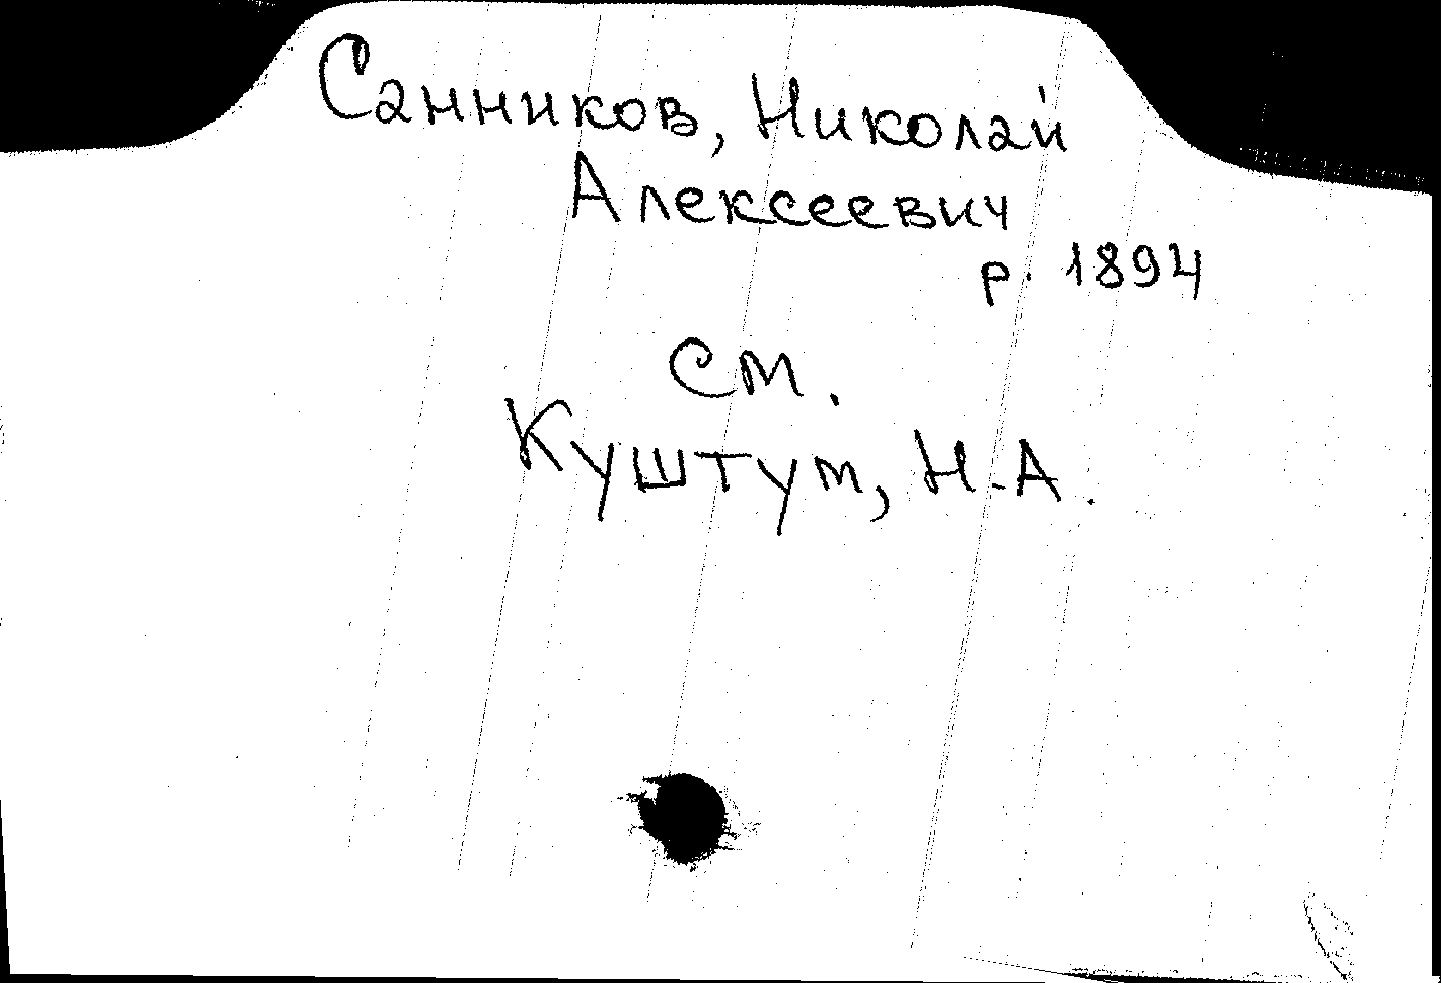 Санников, Николай
Алексеевич
р. 1894
см.
Куштум, Н.А.